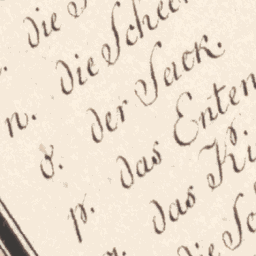 die
n. die Schee
o. der Sack.
p. das Enten
das Ki
die Sc